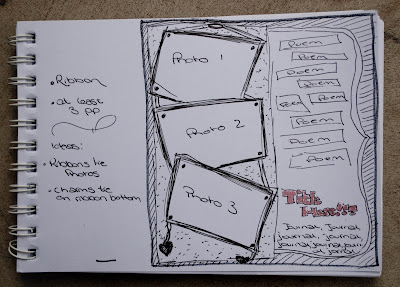 • Ribbon
• at least
3 pp
Ideas:
• Ribbons tie
Photos
• charms tie
on ribbon bottom
Photo 1
Photo 2
Photo 3
Poem
Poem
Poem
Poem
Poem Poem
Poem
Poem
Poem
Title
Here!!!
Journal, Journal,
journal, journal,
journal journal
journal